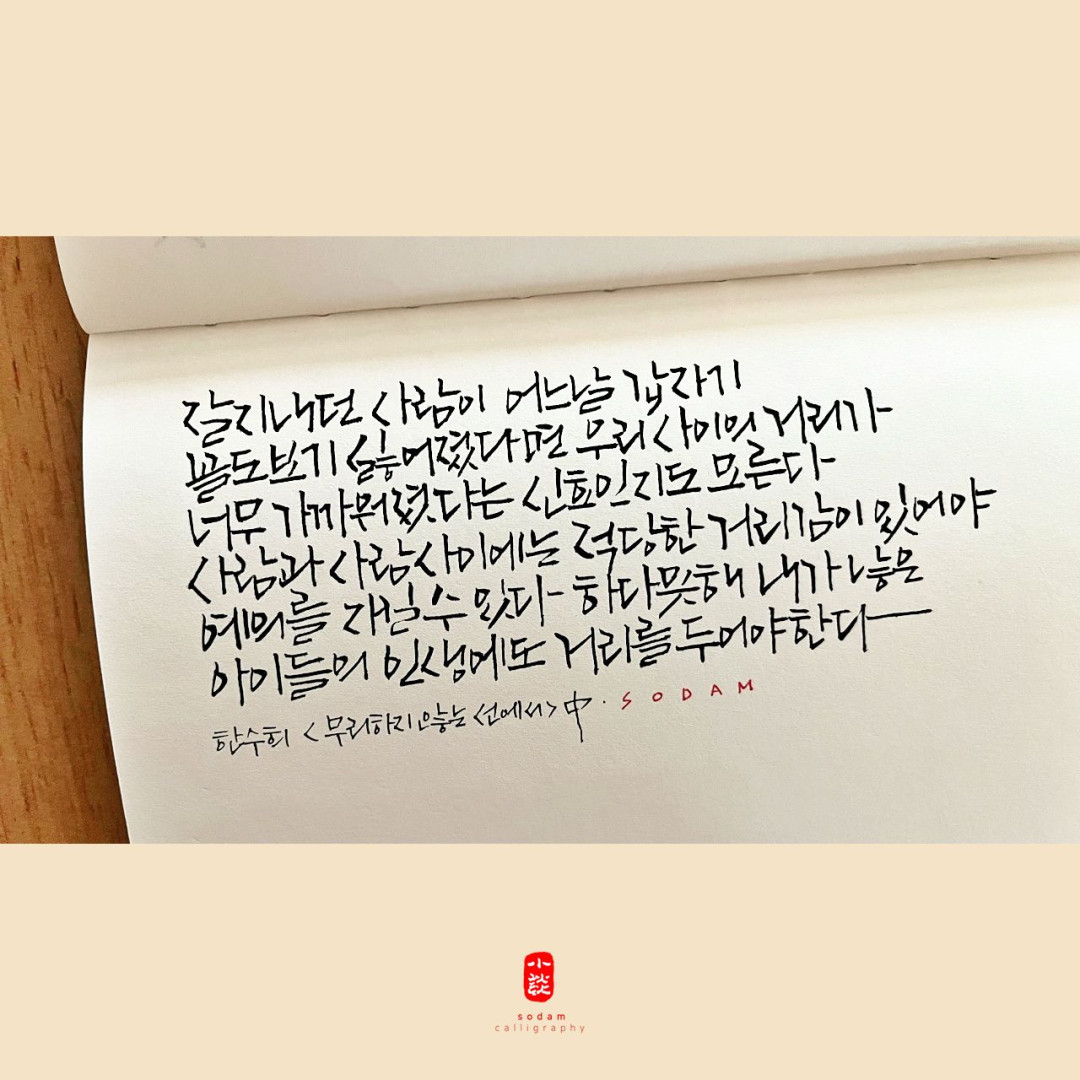 잘지내던 사람이 어느날 갑자기
꼴도보기 싫어졌다면 우리 사이의 거리가
너무 가까워졌다는 신호인지도 모른다
사람과 사람 사이에는 적당한 거리감이 있어야
예의를 차릴 수 있다 하다못해 내가 낳은
아이들의 인생에도 거리를 두어야한다
한수희 <무리하지 않는 선에서> 中. SODAM
小談
sodam
calligraphy